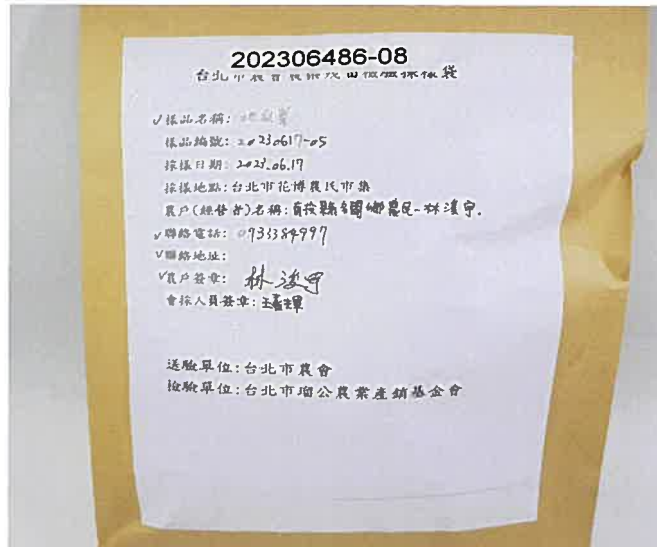 202306486-08
台北市農會農藥殘留檢驗採樣袋
✓樣品名稱: 地瓜葉
樣品編號: 20230617-05
採樣日期: 2023.06.17
採樣地點: 台北市花博農民市集
農戶(經營者)名稱: 農民-林
✓聯絡電話: 0933384997
✓聯絡地址:
✓農戶簽章: 林
會採人員簽章: 王
送驗單位: 台北市農會
檢驗單位: 台北市瑠公農業產銷基金會